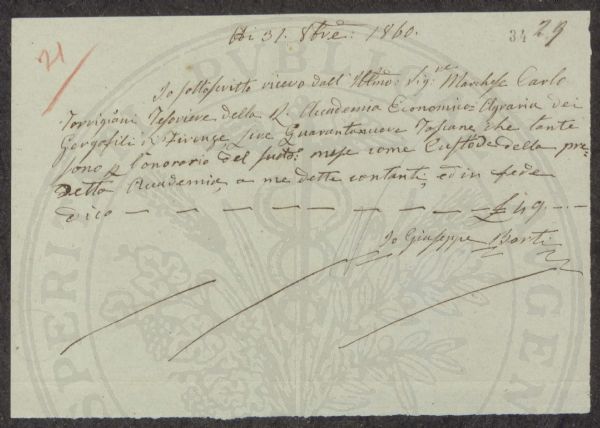 Adi 31. 8bre: 1860.
34 29
21
Io sottoscritto ricevo dall' Illmo: Sig:re Marchese Carlo
Torrigiani Tesoriere della R. Accademia Economico=Agraria dei
Gergofili di Firenze Lire Quarantanuove Toscane che tante
sono p l'onorario del sudto: mese come Custode della pre=
detta Accademia, a me dette contanti, ed in fede
dico — — — — — — — — £ 49. — —
Io Giuseppe Barti